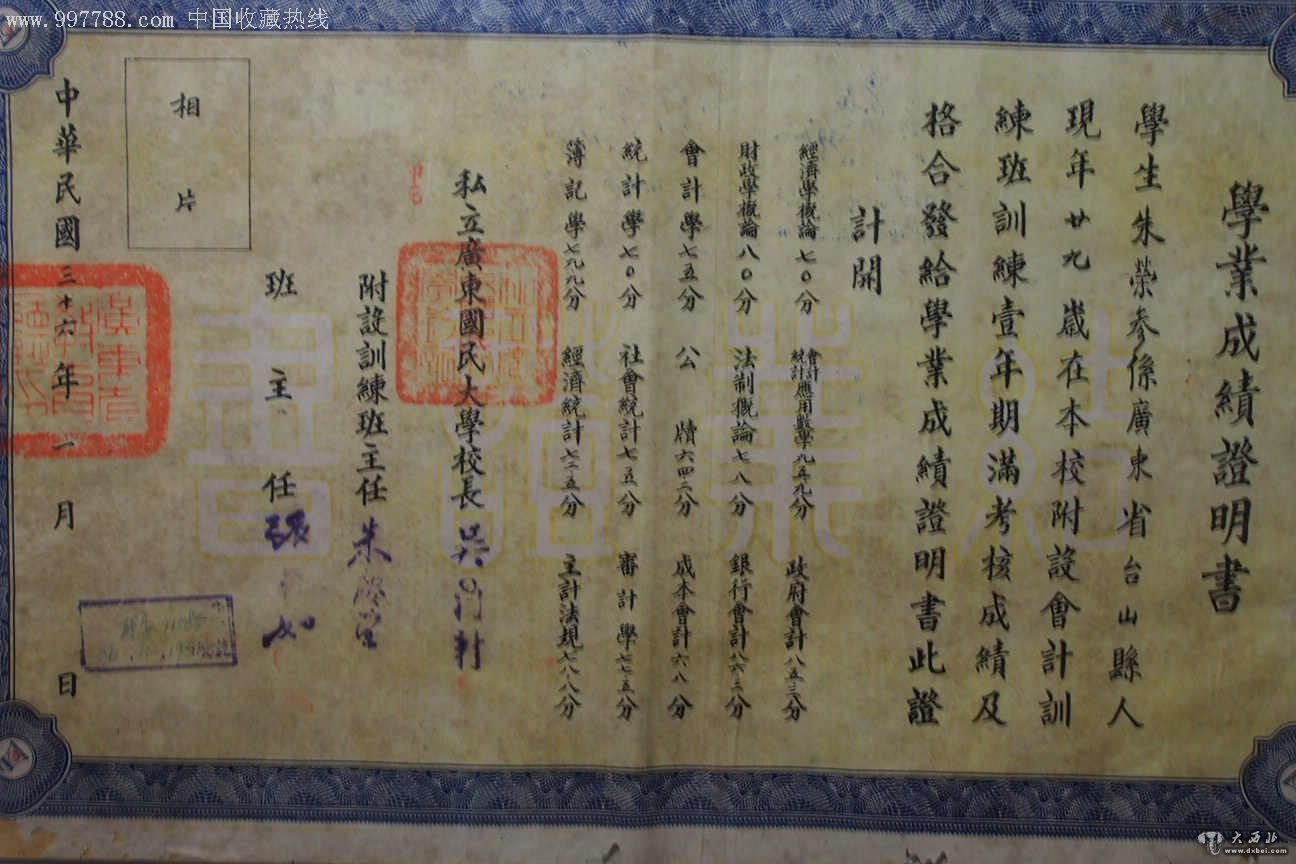 www.997788.com 中国收藏热线
學業成績證明書
學生朱榮參係廣東省台山縣人
現年廿九歲在本校附設會計訓
練班訓練壹年期滿考核成績及
格合發給學業成績證明書此證
計開
經濟學概論七〇分 會計統計應用數學九五九分 政府會計八五三分
財政學概論八〇分 法制概論七八分 銀行會計八六三分
會計學七五分 公牘六四二分 成本會計六八分
統計學七〇分 社會統計七五分 審計學七七五分
簿記學七九九分 經濟統計七二五分 主計法規七八八分
私立廣東國民大學校長吳鼎新
附設訓練班主任朱
班主任張
相片
中華民國三十六年一月 日
結業證書
大西北
www.dxbei.com